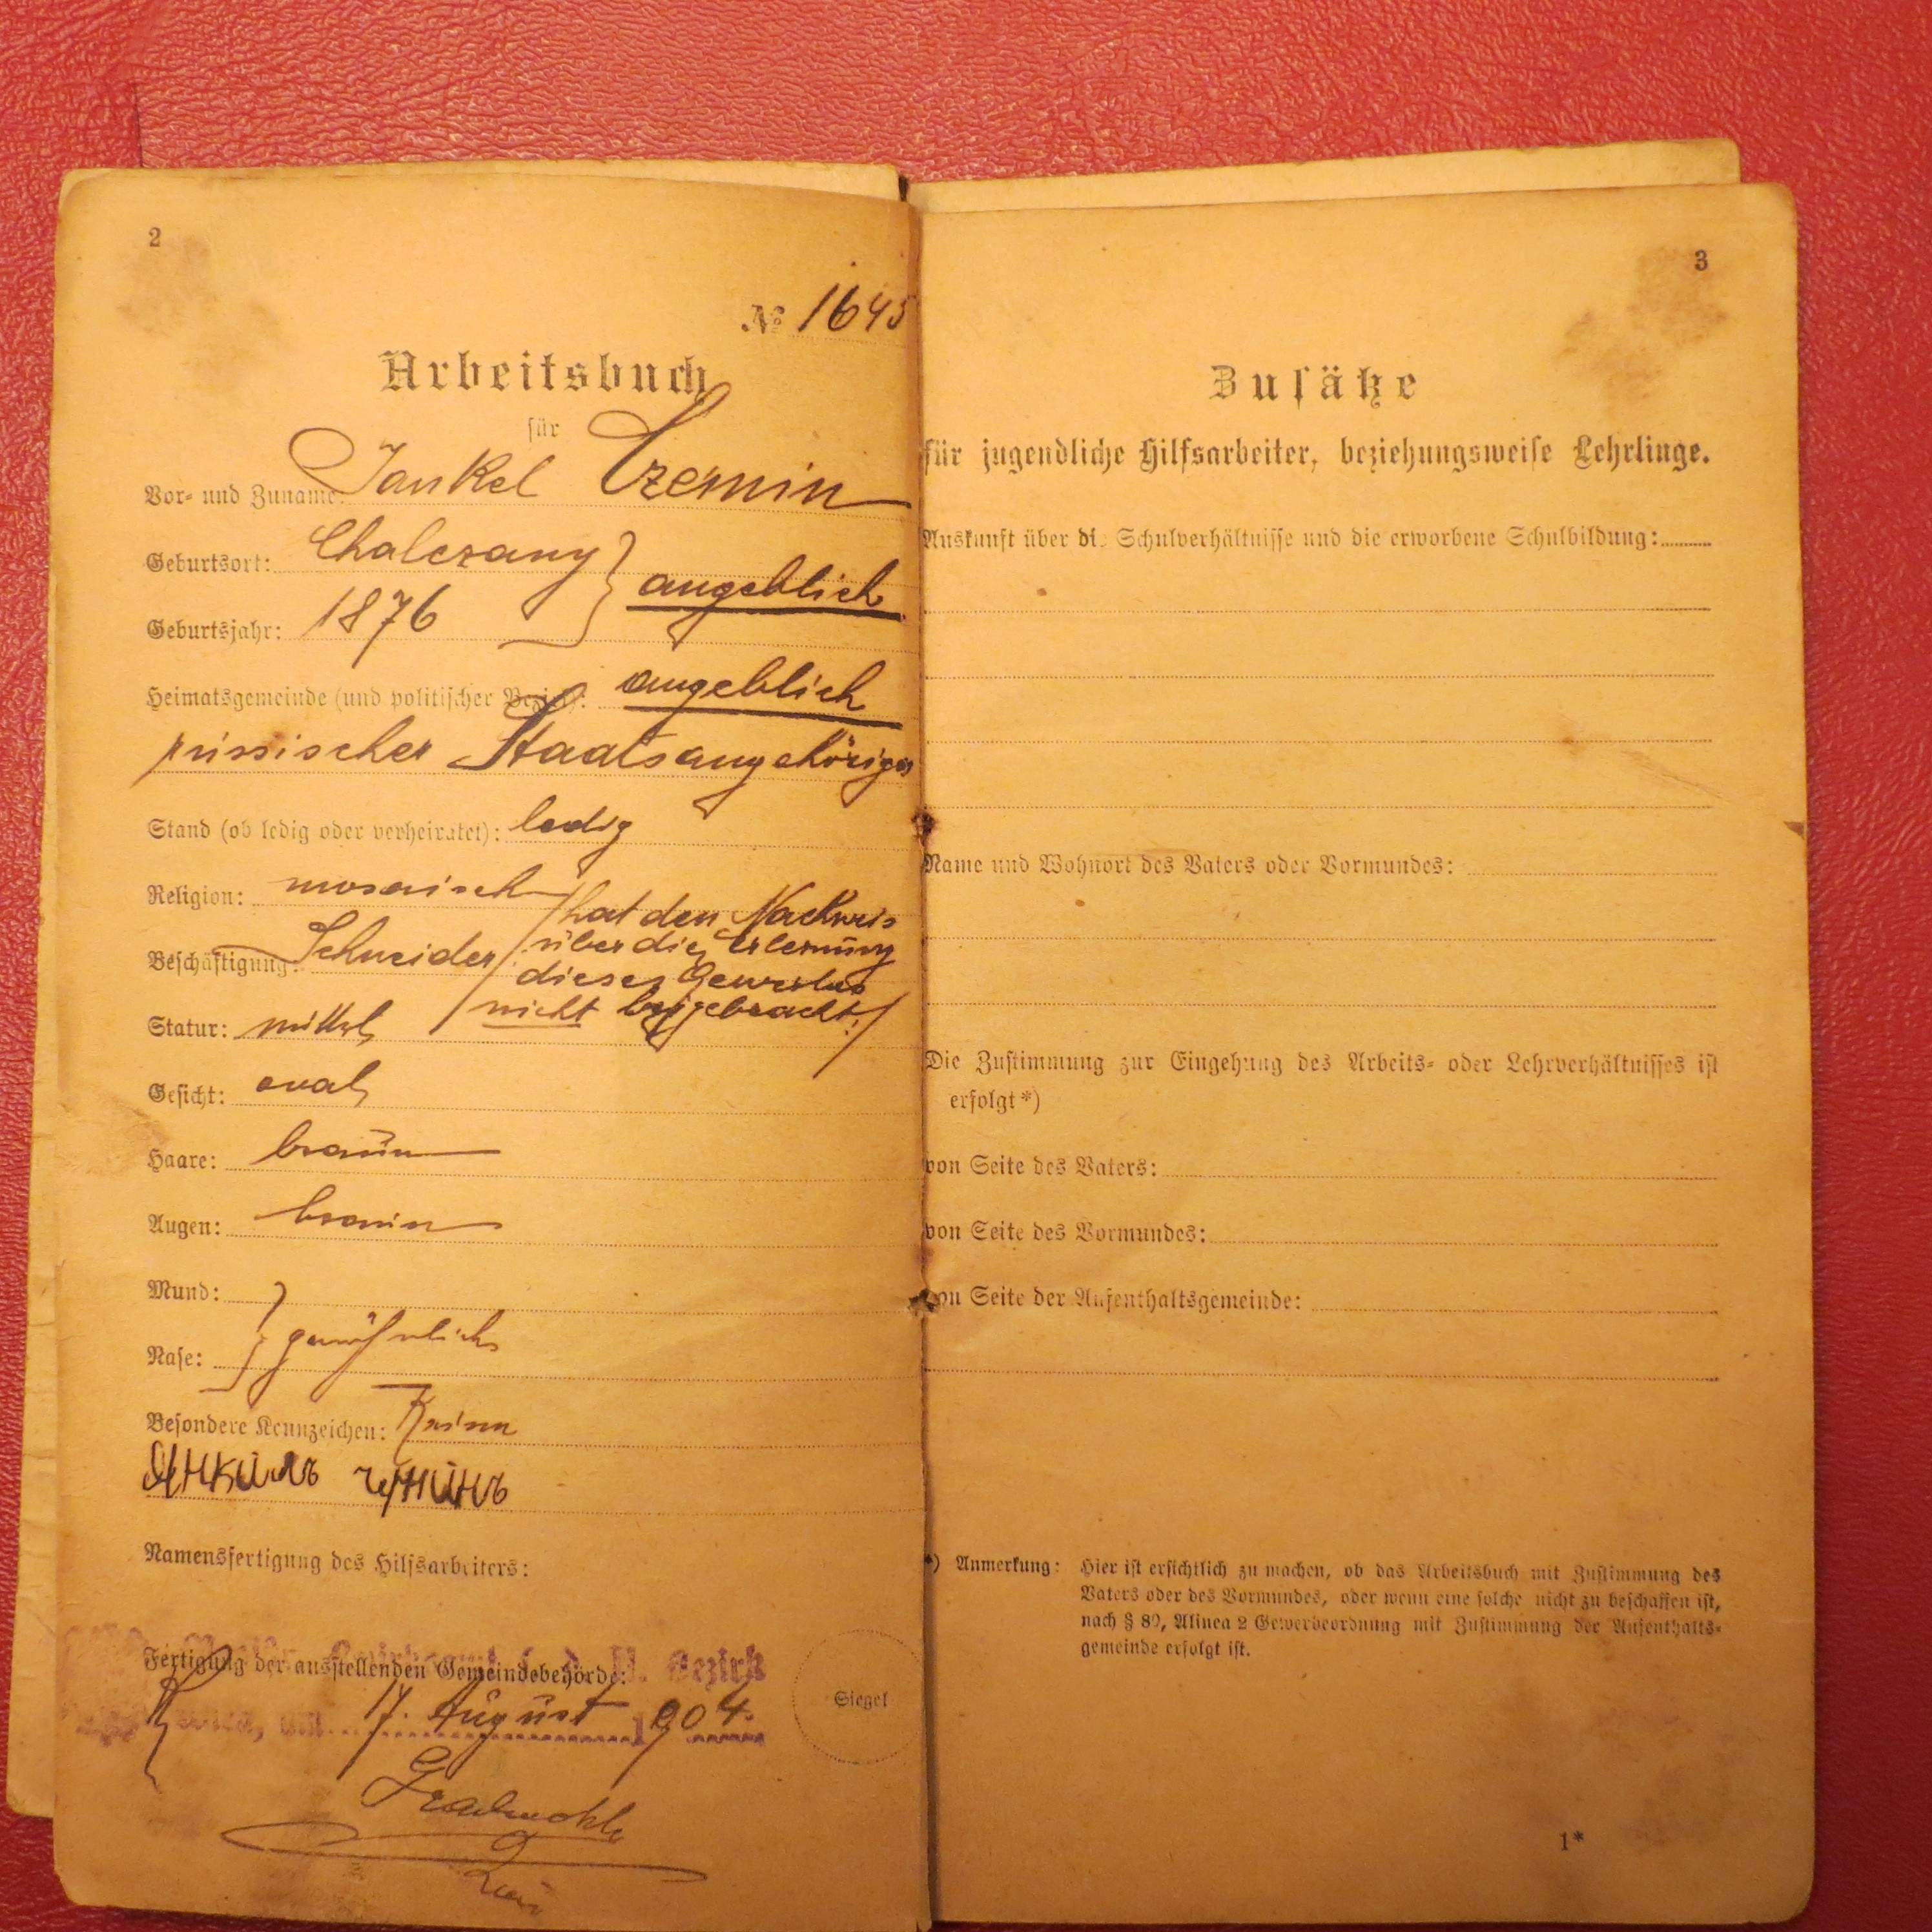 2
№ 1645
Arbeitsbuch
für
Vor- und Zuname: Jankel Czernin
Geburtsort: Chalczany } angeblich
Geburtsjahr: 1876
Heimatsgemeinde (und politischer Bezirk): angeblich
russischer Staatsangehöriger
Stand (ob ledig oder verheiratet): ledig
Religion: mosaisch
Beschäftigung: Schneider /hat den Nachweis
über die Erlernung
dieses Gewerbes
nicht beigebracht!/
Statur: mittel
Gesicht: oval
Haare: braun
Augen: braun
Mund:
Nase: } gewöhnlich
Besondere Kennzeichen: Keine
Янкиль
Namensfertigung des Hilfsarbeiters:
Fertigung der ausstellenden Gemeindebehörde:
Bezirk
Wien, am 17. August 1904.
Siegel
3
Zusätze
für jugendliche Hilfsarbeiter, beziehungsweise Lehrlinge.
Auskunft über die Schulverhältnisse und die erworbene Schulbildung:
Name und Wohnort des Vaters oder Vormundes:
Die Zustimmung zur Eingehung des Arbeits- oder Lehrverhältnisses ist
erfolgt *)
von Seite des Vaters:
von Seite des Vormundes:
von Seite der Aufenthaltsgemeinde:
*) Anmerkung: Hier ist ersichtlich zu machen, ob das Arbeitsbuch mit Zustimmung des
Vaters oder des Vormundes, oder wenn eine solche nicht zu beschaffen ist,
nach § 80, Alinea 2 Gewerbeordnung mit Zustimmung der Aufenthalts-
gemeinde erfolgt ist.
1*